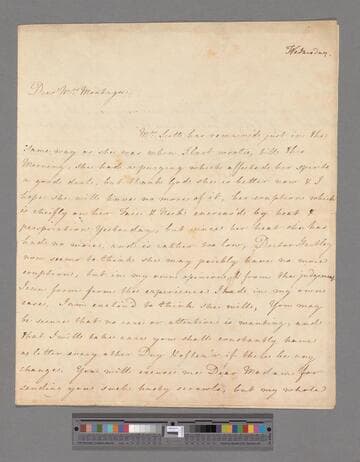 Wednesday
Dear Mrs. Montagu
Mrs. Scott has remained just in the
same way as she was when I last wrote, till this
Morning, she had a purging which affected her spirits
a good deal, but thank God she is better now & I
hope she will have no more of it, her eruption which
is chiefly on her Face & Neck increased by heat &
perspiration Yesterday, but since her heat she has
had no more, and is rather too low, Doctor
now seems to think she may possibly have no more
eruption, but in my own opinion, & from the judgement
I can form from the experience I had in my own
case. I am inclin'd to think she will, You may
be secure that no care or attention is wanting, and
that I will take care you shall constantly have
a letter every other Day & oftener if there be any
changes. You will excuse me Dear Madam for
sending you such hasty scrawls, but my whole